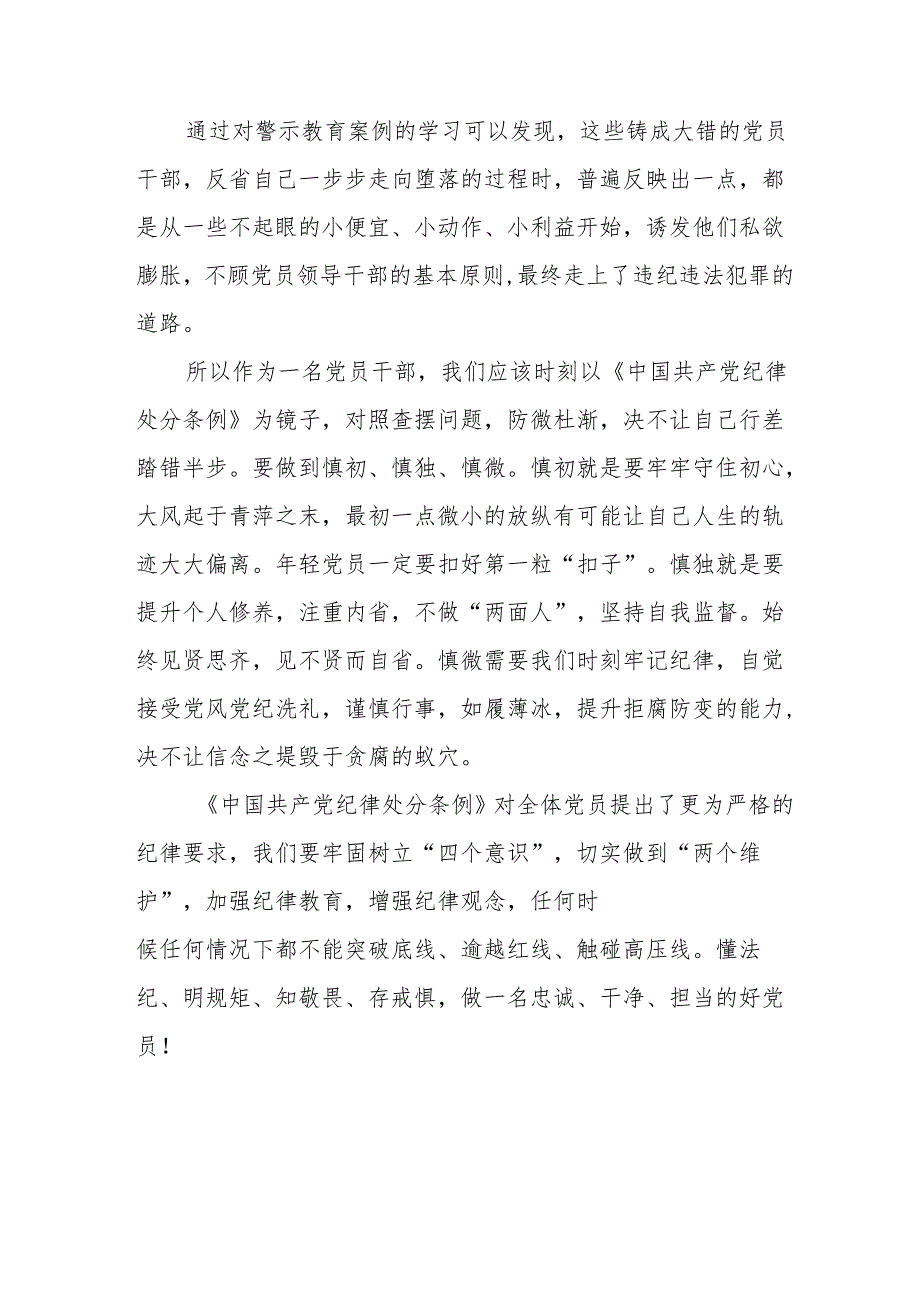 通过对警示教育案例的学习可以发现，这些铸成大错的党员
干部，反省自己一步步走向堕落的过程时，普遍反映出一点，都
是从一些不起眼的小便宜、小动作、小利益开始，诱发他们私欲
膨胀，不顾党员领导干部的基本原则,最终走上了违纪违法犯罪的
道路。
所以作为一名党员干部，我们应该时刻以《中国共产党纪律
处分条例》为镜子，对照查摆问题，防微杜渐，决不让自己行差
踏错半步。要做到慎初、慎独、慎微。慎初就是要牢牢守住初心，
大风起于青萍之末，最初一点微小的放纵有可能让自己人生的轨
迹大大偏离。年轻党员一定要扣好第一粒“扣子”。慎独就是要
提升个人修养，注重内省，不做“两面人”，坚持自我监督。始
终见贤思齐，见不贤而自省。慎微需要我们时刻牢记纪律，自觉
接受党风党纪洗礼，谨慎行事，如履薄冰，提升拒腐防变的能力,
决不让信念之堤毁于贪腐的蚁穴。
《中国共产党纪律处分条例》对全体党员提出了更为严格的
纪律要求，我们要牢固树立“四个意识”，切实做到“两个维
护”，加强纪律教育，增强纪律观念，任何时
候任何情况下都不能突破底线、逾越红线、触碰高压线。懂法
纪、明规矩、知敬畏、存戒惧，做一名忠诚、干净、担当的好党
员！